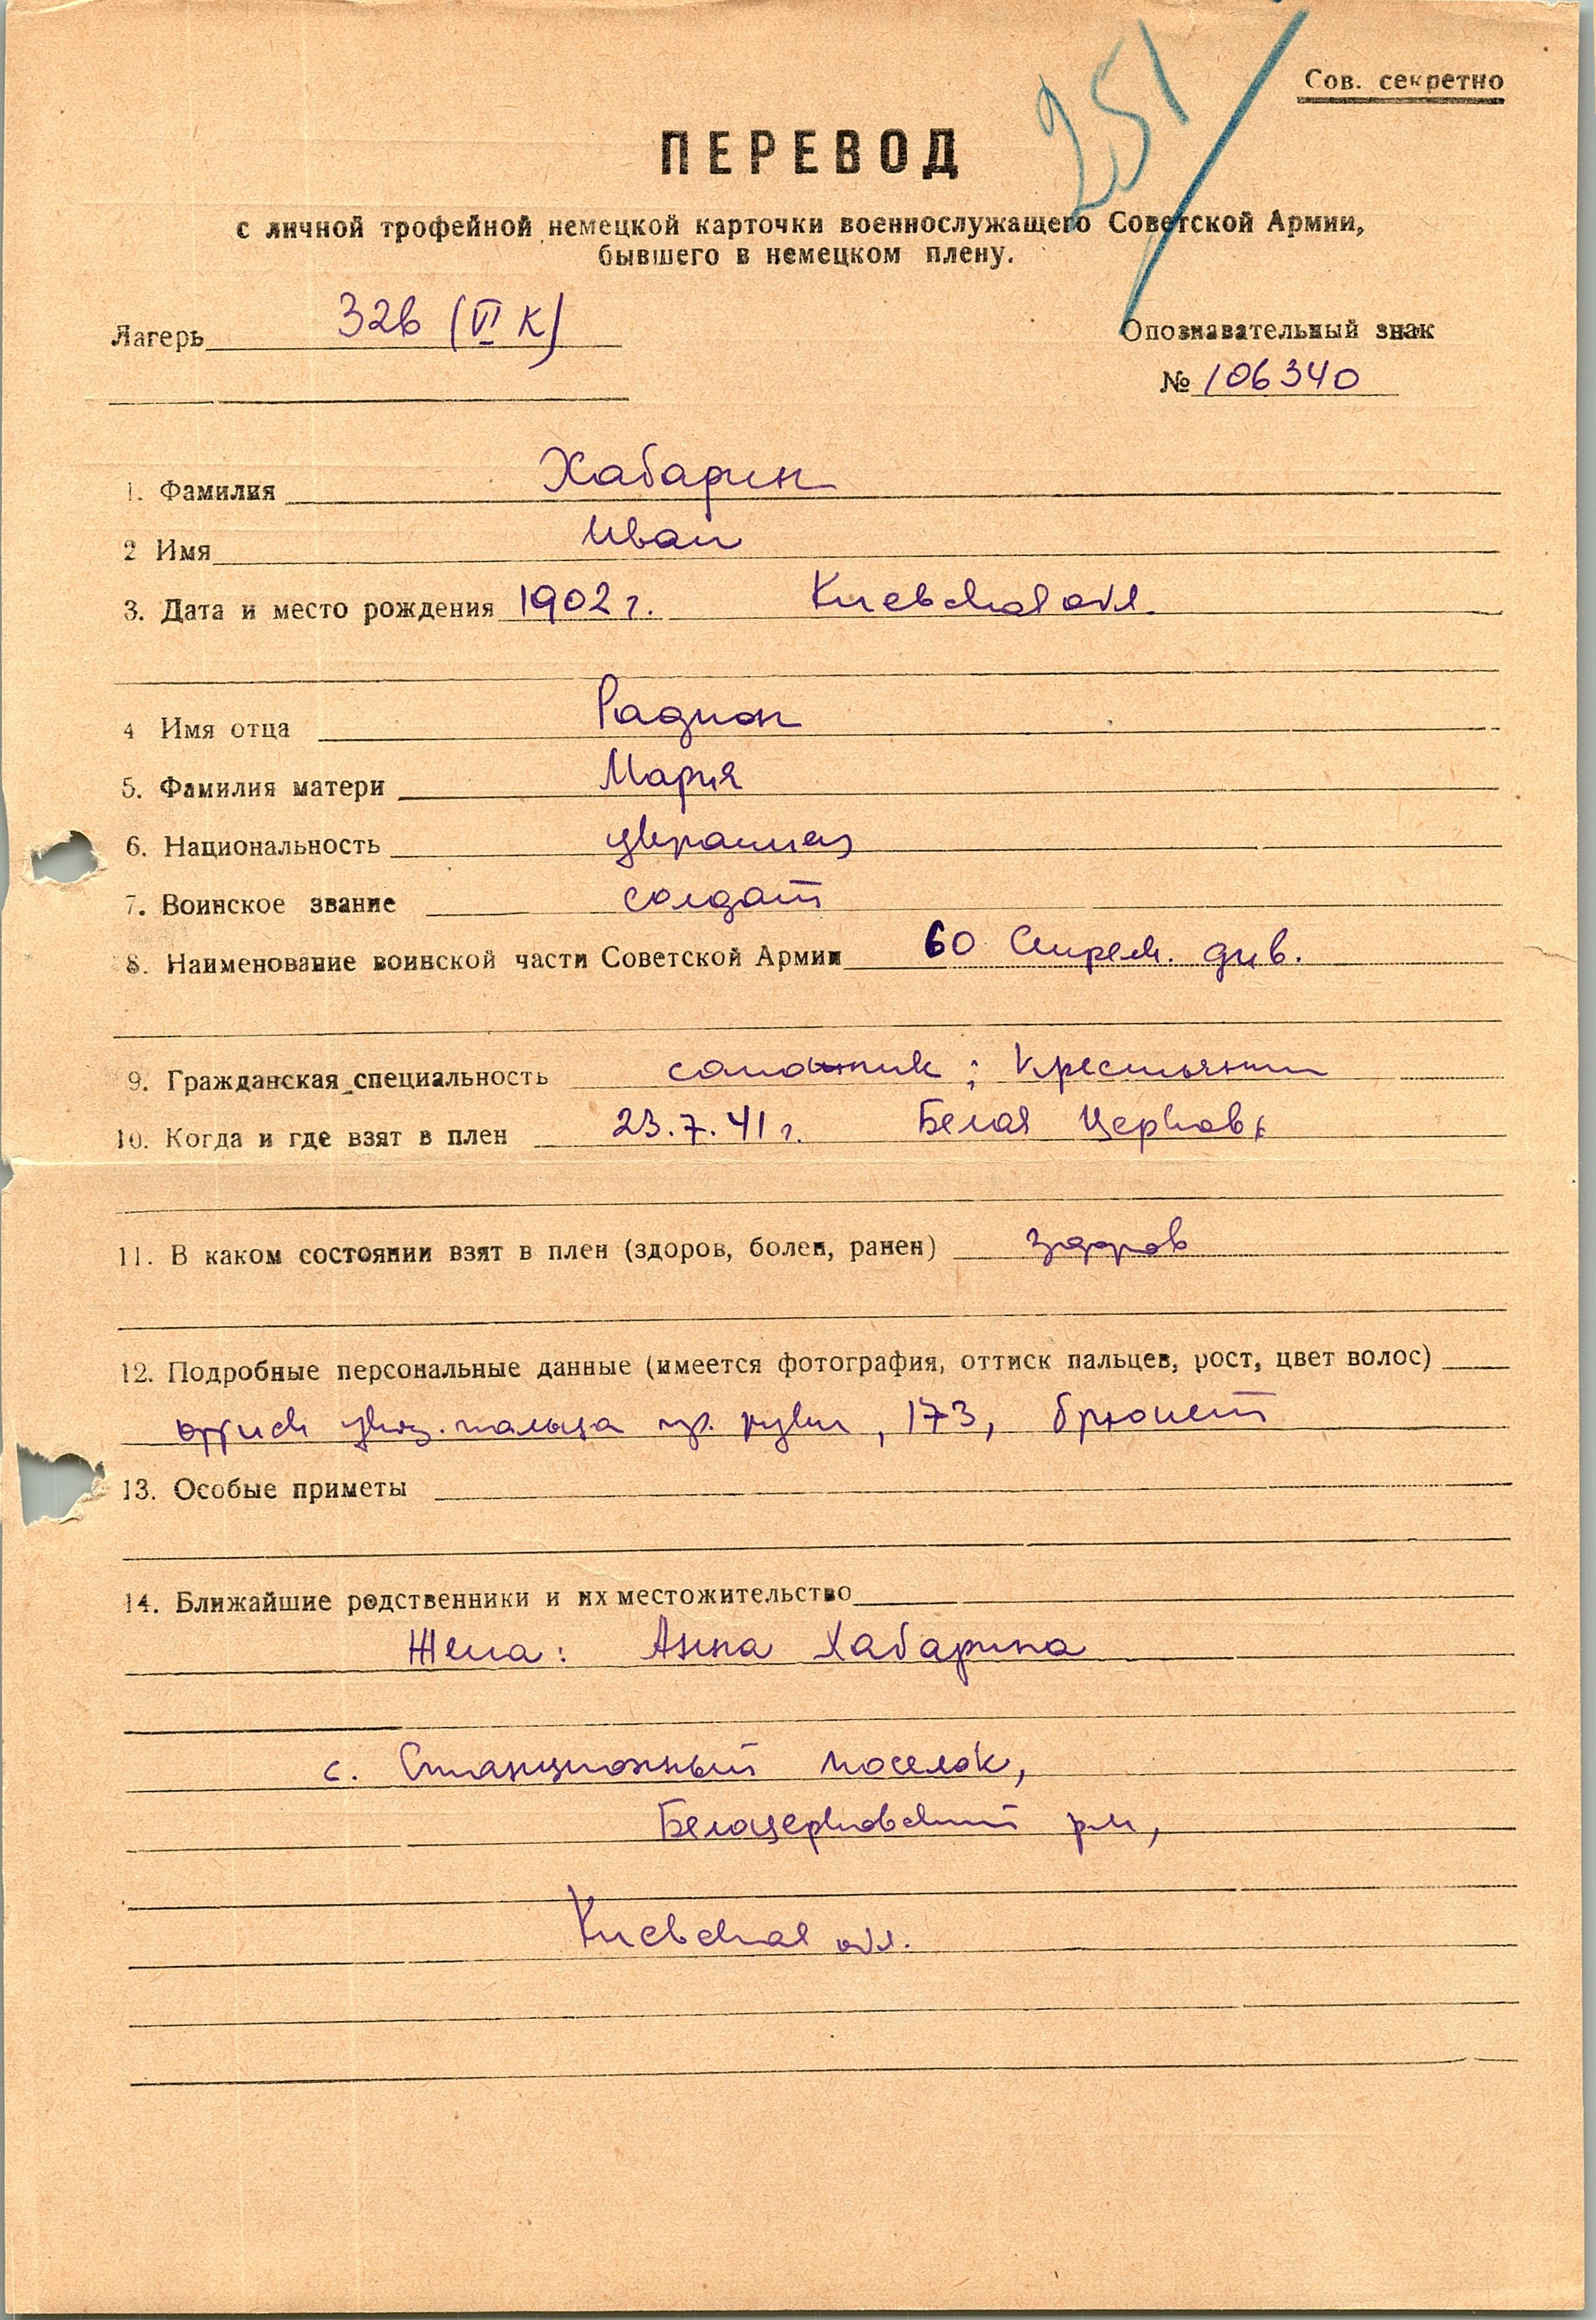 251
Сов. секретно
ПЕРЕВОД
с личной трофейной немецкой карточки военнослужащего Советской Армии,
бывшего в немецком плену.
Лагерь 326 (VI К)
Опознавательный знак
№ 106340
1. Фамилия Хабарин
2 Имя Иван
3. Дата и место рождения 1902 г. Киевская обл.
4 Имя отца Радион
5. Фамилия матери Мария
6. Национальность украинец
7. Воинское звание солдат
8. Наименование воинской части Советской Армии 60 Стрелк. див.
9. Гражданская специальность сапожник; Крестьянин
10. Когда и где взят в плен 23.7.41 г. Белая Церковь
11. В каком состоянии взят в плен (здоров, болен, ранен) здоров
12. Подробные персональные данные (имеется фотография, оттиск пальцев, рост, цвет волос)
оттиск указ. пальца пр. руки, 173, брюнет
13. Особые приметы
14. Ближайшие родственники и их местожительство
Жена: Анна Хабарина
с. Станционный поселок,
Белоцерковский р-н,
Киевская обл.